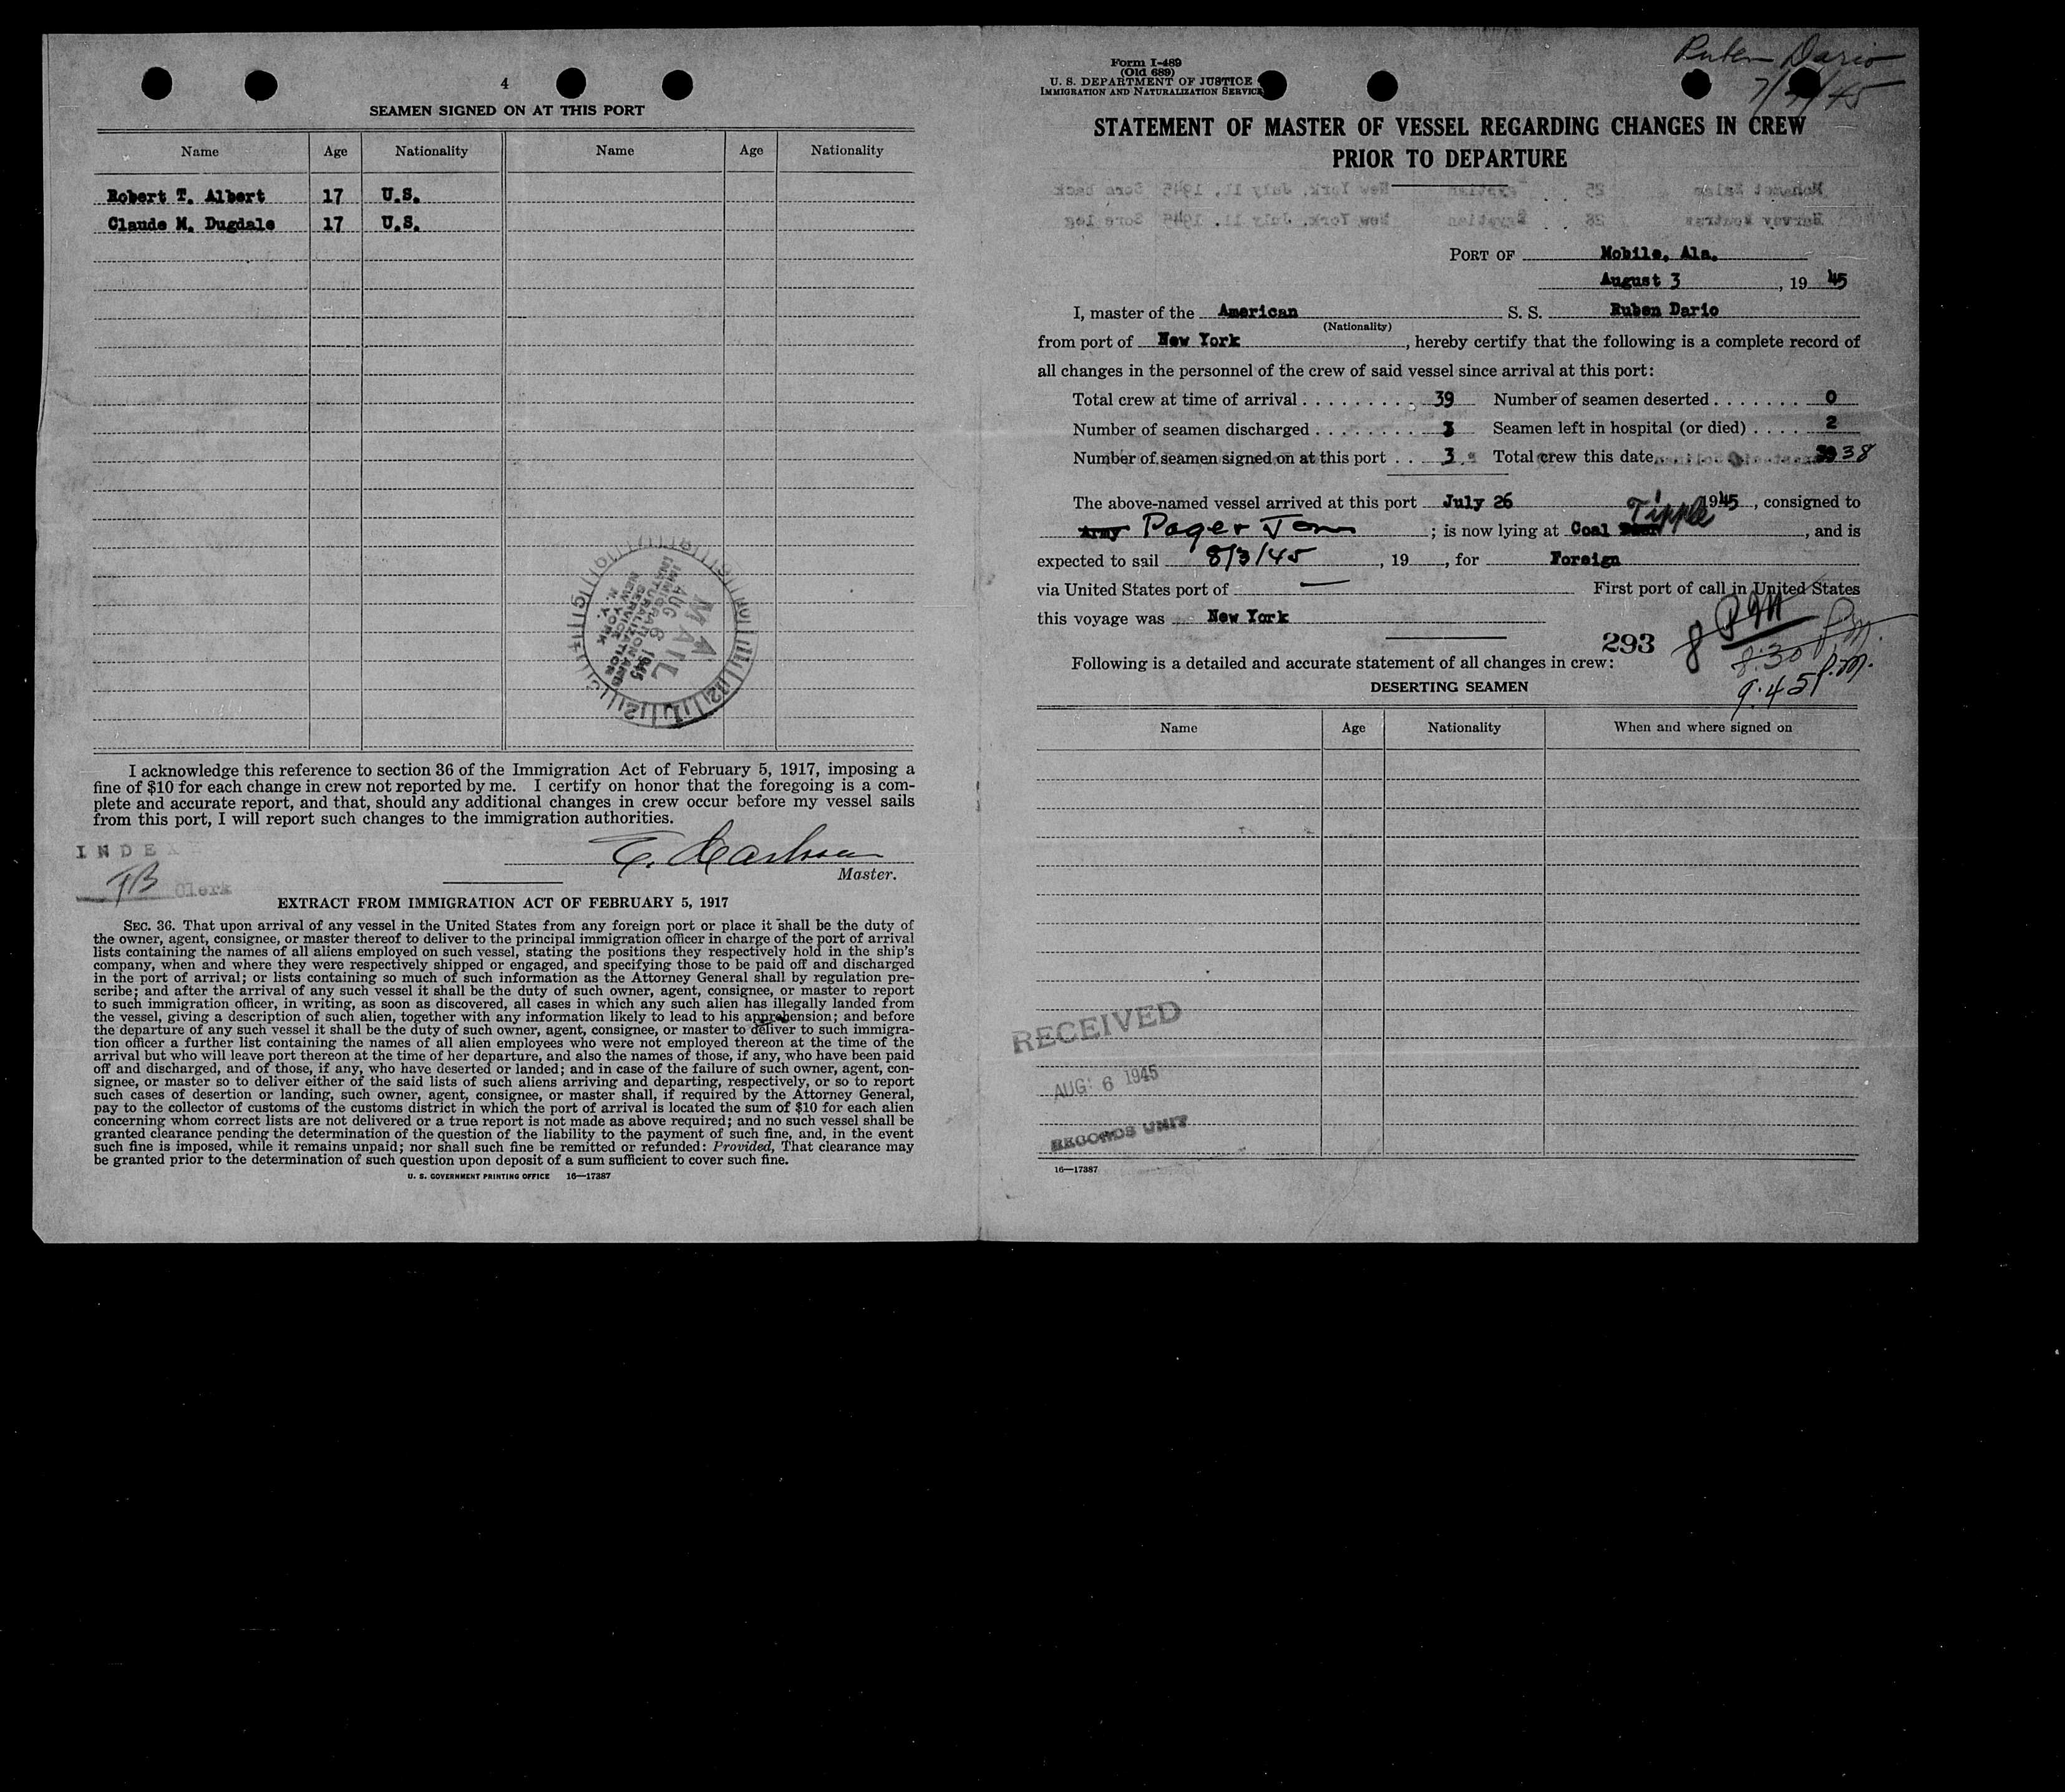 4
SEAMEN SIGNED ON AT THIS PORT
Name Age Nationality Name Age Nationality
Robert T. Albert 17 U.S.
Claude M. Dugdale 17 U.S.
MAIL
AUG 6 1945
IMMIGRATION AND
NATURALIZATION
SERVICE
NEW YORK
N. Y.
I acknowledge this reference to section 36 of the Immigration Act of February 5, 1917, imposing a
fine of $10 for each change in crew not reported by me. I certify on honor that the foregoing is a com-
plete and accurate report, and that, should any additional changes in crew occur before my vessel sails
from this port, I will report such changes to the immigration authorities.
INDEX
Clerk
Master.
EXTRACT FROM IMMIGRATION ACT OF FEBRUARY 5, 1917
SEC. 36. That upon arrival of any vessel in the United States from any foreign port or place it shall be the duty of
the owner, agent, consignee, or master thereof to deliver to the principal immigration officer in charge of the port of arrival
lists containing the names of all aliens employed on such vessel, stating the positions they respectively hold in the ship's
company, when and where they were respectively shipped or engaged, and specifying those to be paid off and discharged
in the port of arrival; or lists containing so much of such information as the Attorney General shall by regulation pre-
scribe; and after the arrival of any such vessel it shall be the duty of such owner, agent, consignee, or master to report
to such immigration officer, in writing, as soon as discovered, all cases in which any such alien has illegally landed from
the vessel, giving a description of such alien, together with any information likely to lead to his apprehension; and before
the departure of any such vessel it shall be the duty of such owner, agent, consignee, or master to deliver to such immigra-
tion officer a further list containing the names of all alien employees who were not employed thereon at the time of the
arrival but who will leave port thereon at the time of her departure, and also the names of those, if any, who have been paid
off and discharged, and of those, if any, who have deserted or landed; and in case of the failure of such owner, agent, con-
signee, or master so to deliver either of the said lists of such aliens arriving and departing, respectively, or so to report
such cases of desertion or landing, such owner, agent, consignee, or master shall, if required by the Attorney General,
pay to the collector of customs of the customs district in which the port of arrival is located the sum of $10 for each alien
concerning whom correct lists are not delivered or a true report is not made as above required; and no such vessel shall be
granted clearance pending the determination of the question of the liability to the payment of such fine, and, in the event
such fine is imposed, while it remains unpaid; nor shall such fine be remitted or refunded: Provided, That clearance may
be granted prior to the determination of such question upon deposit of a sum sufficient to cover such fine.
U. S. GOVERNMENT PRINTING OFFICE 16—17387
Form I-489
(Old 689)
U. S. DEPARTMENT OF JUSTICE
IMMIGRATION AND NATURALIZATION SERVICE
Ruben Dario
STATEMENT OF MASTER OF VESSEL REGARDING CHANGES IN CREW
PRIOR TO DEPARTURE
PORT OF Mobile, Ala.
August 3, 19 45
I, master of the American S. S. Ruben Dario
(Nationality)
from port of New York, hereby certify that the following is a complete record of
all changes in the personnel of the crew of said vessel since arrival at this port:
Total crew at time of arrival 39 Number of seamen deserted 0
Number of seamen discharged 3 Seamen left in hospital (or died) 2
Number of seamen signed on at this port 3 Total crew this date 39 38
The above-named vessel arrived at this port July 26 1945, consigned to
Army ; is now lying at Coal Tipple, and is
expected to sail 8/3/45, 19 , for Foreign
via United States port of — First port of call in United States
this voyage was New York
293 8 PM
8:30 PM.
9.45 P.M.
Following is a detailed and accurate statement of all changes in crew:
DESERTING SEAMEN
Name Age Nationality When and where signed on
RECEIVED
AUG 6 1945
RECORDS UNIT
16—17387